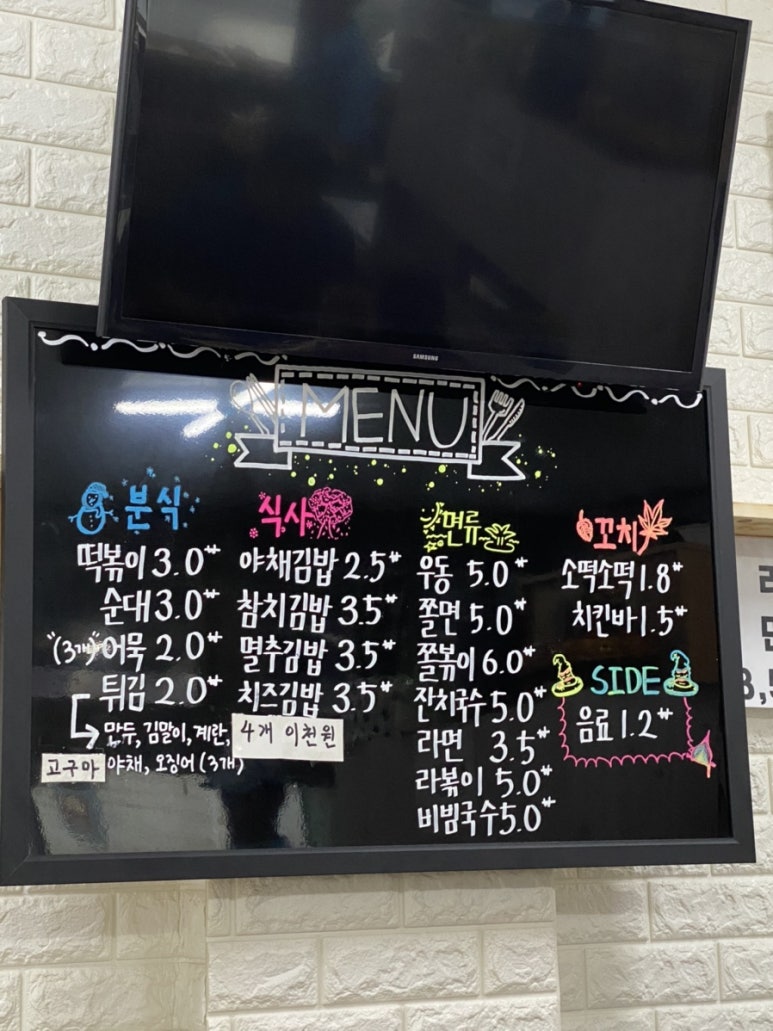 SAMSUNG
MENU
분식
떡볶이 3.0
순대 3.0
"(3개)" 어묵 2.0
튀김 2.0
만두, 김말이, 계란,
고구마 야채, 오징어 (3개)
식사
야채김밥 2.5
참치김밥 3.5
멸추김밥 3.5
치즈김밥 3.5
4개 이천원
면류
우동 5.0
쫄면 5.0
쫄볶이 6.0
잔치국수 5.0
라면 3.5
라볶이 5.0
비빔국수 5.0
꼬치
소떡소떡 1.8
치킨바 1.5
SIDE
음료 1.2